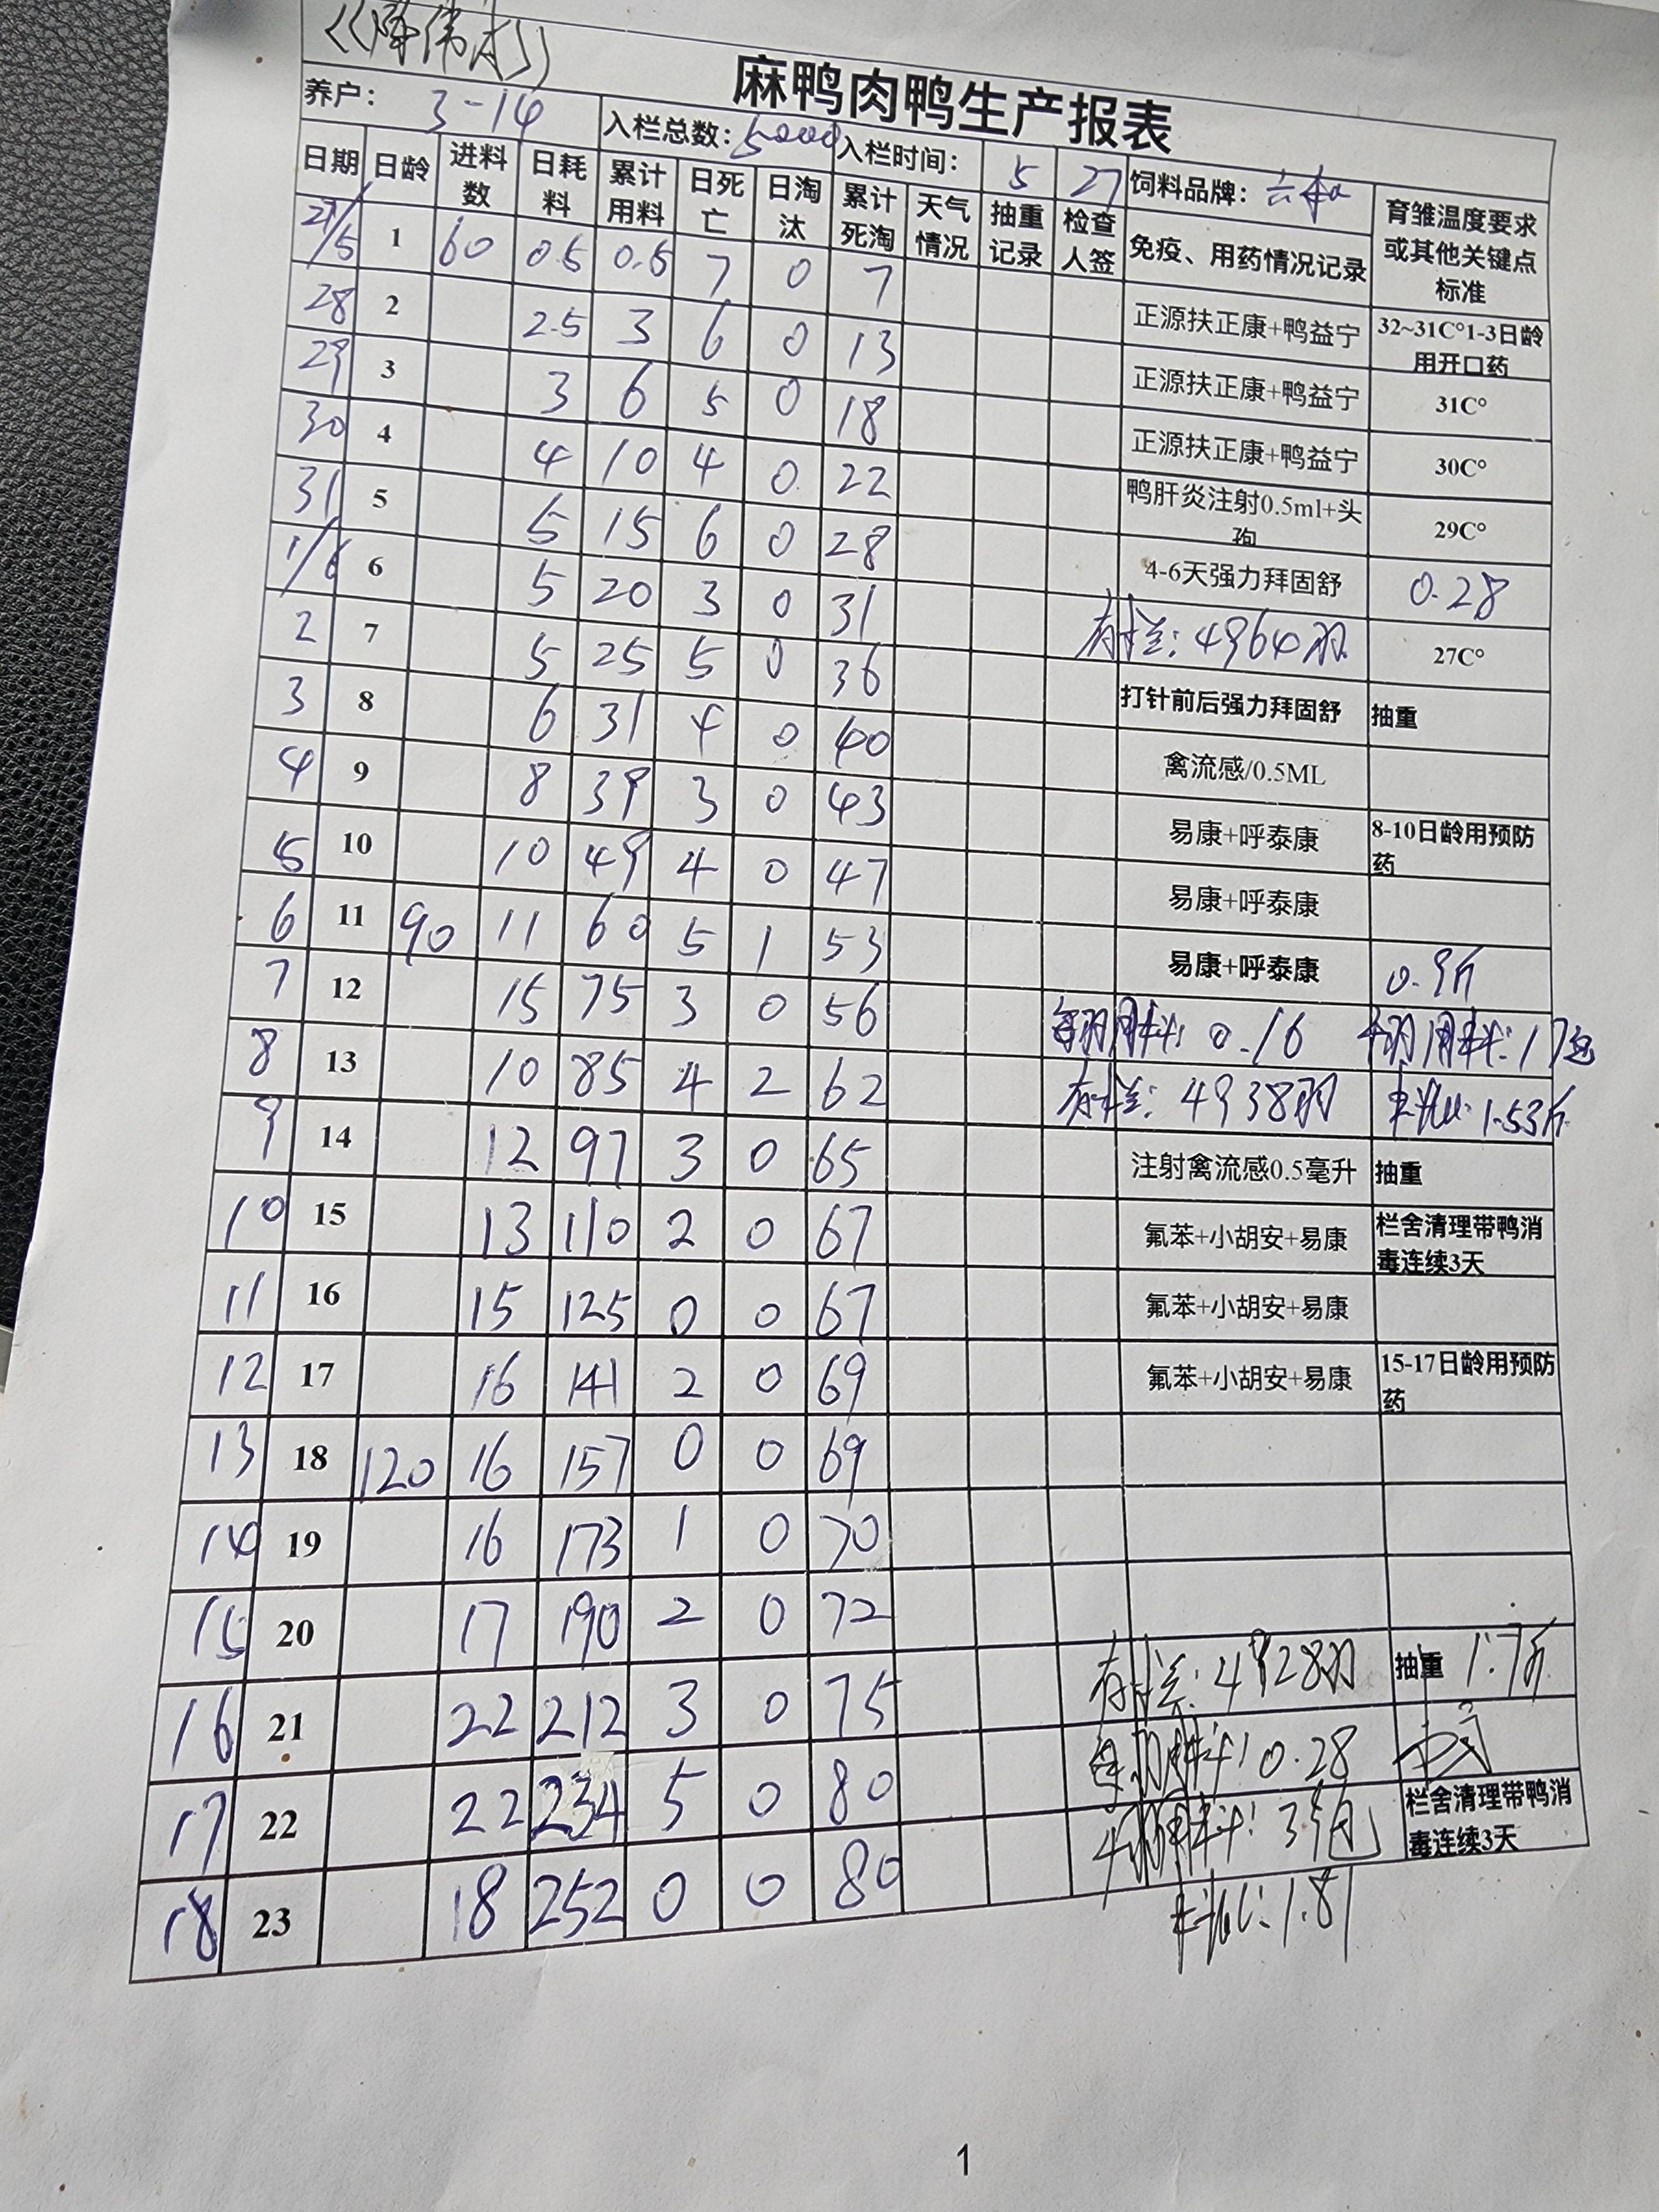 麻鸭肉鸭生产报表
养户： 3-14 入栏总数：5000 入栏时间： 5 27 饲料品牌：六和
日期 日龄 进料数 日耗料 累计用料 日死亡 日淘汰 累计死淘 天气情况 抽重记录 检查人签 免疫、用药情况记录 育雏温度要求或其他关键点标准
27/5 1 60 0.5 0.5 7 0 7 正源扶正康+鸭益宁 32~31C°1-3日龄用开口药
28 2 2.5 3 6 0 13 正源扶正康+鸭益宁 31C°
29 3 3 6 5 0 18 正源扶正康+鸭益宁 30C°
30 4 4 10 4 0 22 鸭肝炎注射0.5ml+头孢 29C°
31 5 5 15 6 0 28 4-6天强力拜固舒 0.28
1/6 6 5 20 3 0 31 存栏：4964羽 27C°
2 7 5 25 5 0 36 打针前后强力拜固舒 抽重
3 8 6 31 4 0 40 禽流感/0.5ML
4 9 8 39 3 0 43 易康+呼泰康 8-10日龄用预防药
5 10 10 49 4 0 47 易康+呼泰康
6 11 90 11 60 5 1 53 易康+呼泰康 0.9斤
7 12 15 75 3 0 56 每羽用料：0.16 千羽用料：17包
8 13 10 85 4 2 62 存栏：4938羽 料比：1.53斤
9 14 12 97 3 0 65 注射禽流感0.5毫升 抽重
10 15 13 110 2 0 67 氟苯+小胡安+易康 栏舍清理带鸭消毒连续3天
11 16 15 125 0 0 67 氟苯+小胡安+易康
12 17 16 141 2 0 69 氟苯+小胡安+易康 15-17日龄用预防药
13 18 120 16 157 0 0 69
14 19 16 173 1 0 70
15 20 17 190 2 0 72
16 21 22 212 3 0 75 存栏：4928羽 抽重 1.7斤
17 22 22 234 5 0 80 每羽料：0.28
18 23 18 252 0 0 80 栏舍清理带鸭消毒连续3天
料比：1.81
1